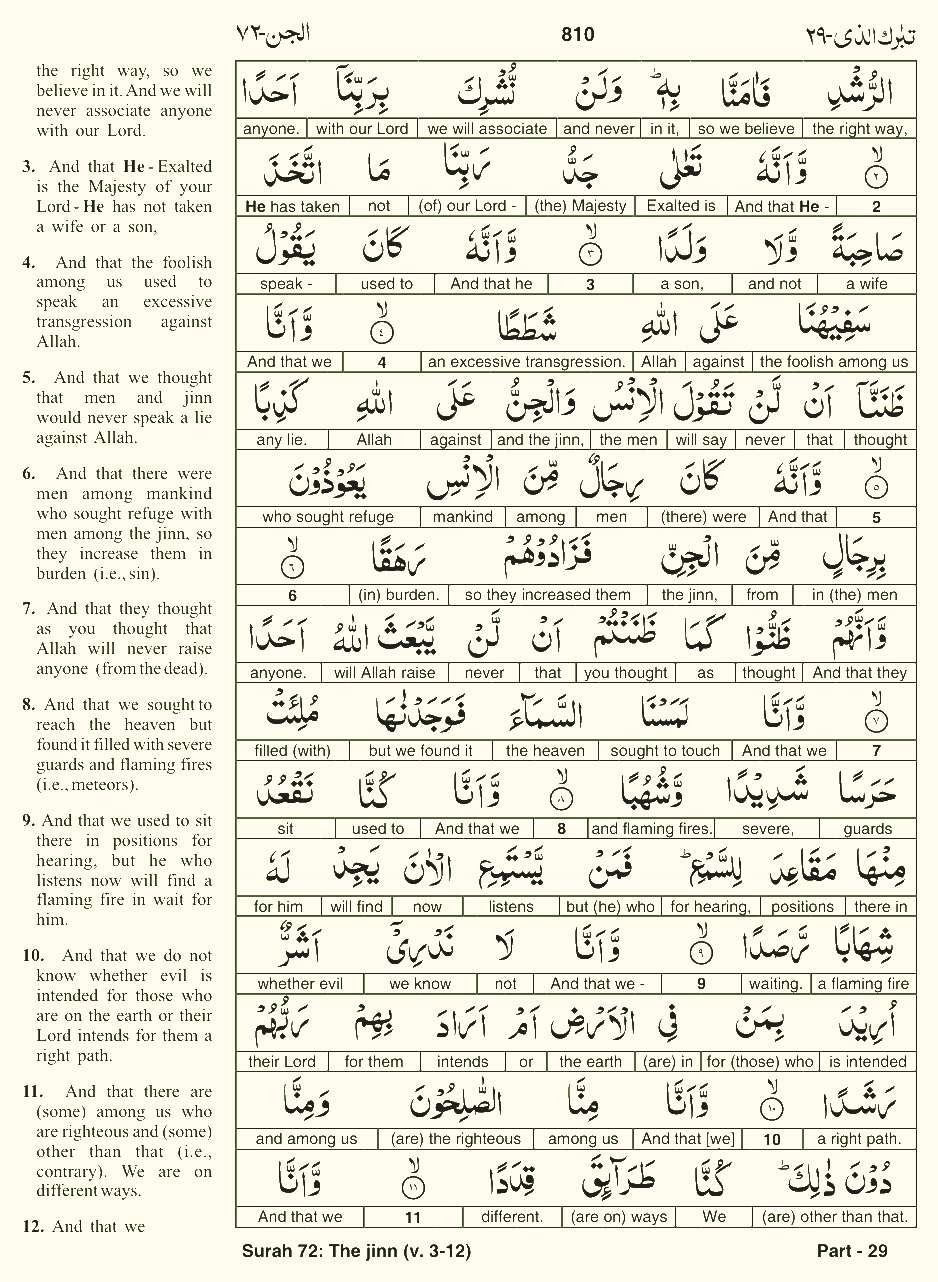 الجن-٧٢ 810 تبٰرك الذى-٢٩
the right way, so we
believe in it. And we will
never associate anyone
with our Lord.
3. And that He - Exalted
is the Majesty of your
Lord - He has not taken
a wife or a son,
4. And that the foolish
among us used to
speak an excessive
transgression against
Allah.
5. And that we thought
that men and jinn
would never speak a lie
against Allah.
6. And that there were
men among mankind
who sought refuge with
men among the jinn, so
they increase them in
burden (i.e., sin).
7. And that they thought
as you thought that
Allah will never raise
anyone (from the dead).
8. And that we sought to
reach the heaven but
found it filled with severe
guards and flaming fires
(i.e., meteors).
9. And that we used to sit
there in positions for
hearing, but he who
listens now will find a
flaming fire in wait for
him.
10. And that we do not
know whether evil is
intended for those who
are on the earth or their
Lord intends for them a
right path.
11. And that there are
(some) among us who
are righteous and (some)
other than that (i.e.,
contrary). We are on
different ways.
12. And that we
الرُّشْدِ فَاٰمَنَّا بِهٖ ؕ وَلَنْ نُّشْرِكَ بِرَبِّنَاۤ اَحَدًا
anyone. with our Lord we will associate and never in it, so we believe the right way,
ۙ‏﴿۲﴾ وَّاَنَّهٗ تَعٰلٰى جَدُّ رَبِّنَا مَا اتَّخَذَ
He has taken not (of) our Lord - (the) Majesty Exalted is And that He - 2
صَاحِبَةً وَّلَا وَلَدًا ۙ‏﴿۳﴾ وَّاَنَّهٗ كَانَ يَقُوْلُ
speak - used to And that he 3 a son, and not a wife
سَفِيْهُنَا عَلَى اللّٰهِ شَطَطًا ۙ‏﴿۴﴾ وَّاَنَّا
And that we 4 an excessive transgression. Allah against the foolish among us
ظَنَنَّاۤ اَنْ لَّنْ تَقُوْلَ الْاِنْسُ وَالْجِنُّ عَلَى اللّٰهِ كَذِبًا
any lie. Allah against and the jinn, the men will say never that thought
ۙ‏﴿۵﴾ وَّاَنَّهٗ كَانَ رِجَالٌ مِّنَ الْاِنْسِ يَعُوْذُوْنَ
who sought refuge mankind among men (there) were And that 5
بِرِجَالٍ مِّنَ الْجِنِّ فَزَادُوْهُمْ رَهَقًا ۙ‏﴿۶﴾
6 (in) burden. so they increased them the jinn, from in (the) men
وَّاَنَّهُمْ ظَنُّوْا كَمَا ظَنَنْتُمْ اَنْ لَّنْ يَّبْعَثَ اللّٰهُ اَحَدًا
anyone. will Allah raise never that you thought as thought And that they
ۙ‏﴿۷﴾ وَّاَنَّا لَمَسْنَا السَّمَآءَ فَوَجَدْنٰهَا مُلِئَتْ
filled (with) but we found it the heaven sought to touch And that we 7
حَرَسًا شَدِيْدًا وَّشُهُبًا ۙ‏﴿۸﴾ وَّاَنَّا كُنَّا نَقْعُدُ
sit used to And that we 8 and flaming fires. severe, guards
مِنْهَا مَقَاعِدَ لِلسَّمْعِ ؕ فَمَنْ يَّسْتَمِعِ الْاٰنَ يَجِدْ لَهٗ
for him will find now listens but (he) who for hearing, positions there in
شِهَابًا رَّصَدًا ۙ‏﴿۹﴾ وَّاَنَّا لَا نَدْرِىْۤ اَشَرٌّ
whether evil we know not And that we - 9 waiting. a flaming fire
اُرِيْدَ بِمَنْ فِى الْاَرْضِ اَمْ اَرَادَ بِهِمْ رَبُّهُمْ
their Lord for them intends or the earth (are) in for (those) who is intended
رَشَدًا ۙ‏﴿۱۰﴾ وَّاَنَّا مِنَّا الصّٰلِحُوْنَ وَمِنَّا
and among us (are) the righteous among us And that [we] 10 a right path.
دُوْنَ ذٰلِكَ ؕ كُنَّا طَرَآئِقَ قِدَدًا ۙ‏﴿۱۱﴾ وَّاَنَّا
And that we 11 different. (are on) ways We (are) other than that.
Surah 72: The jinn (v. 3-12) Part - 29